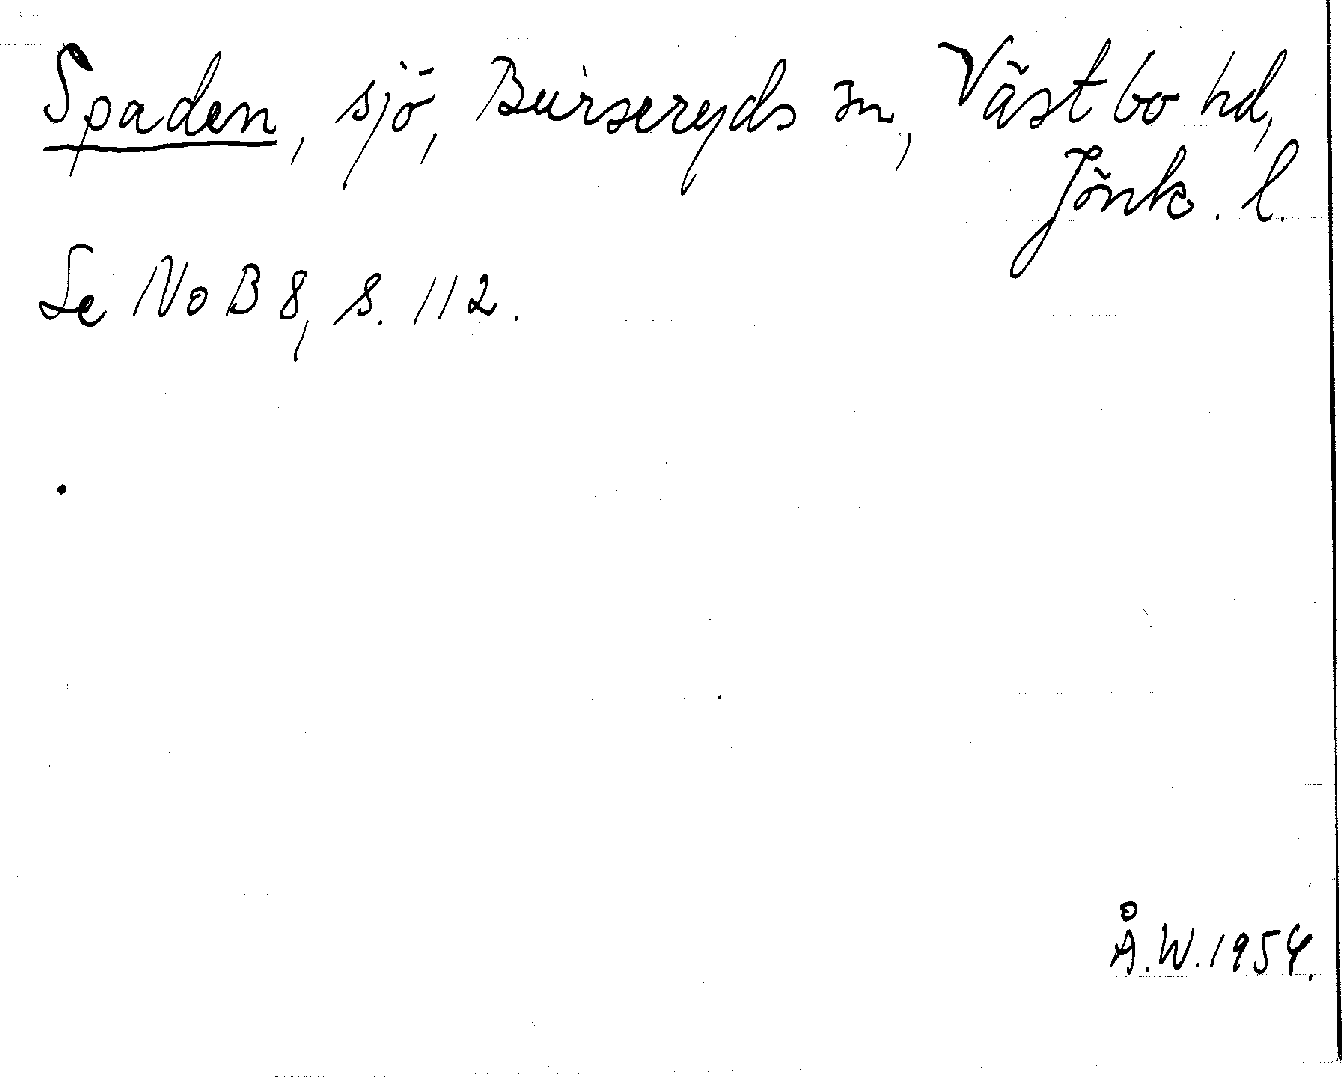 Spaden, sjö, Burseryds sn, Västbo hd,
Jönk. l.
Se NoB 8, s. 112.
Å.W. 1954.